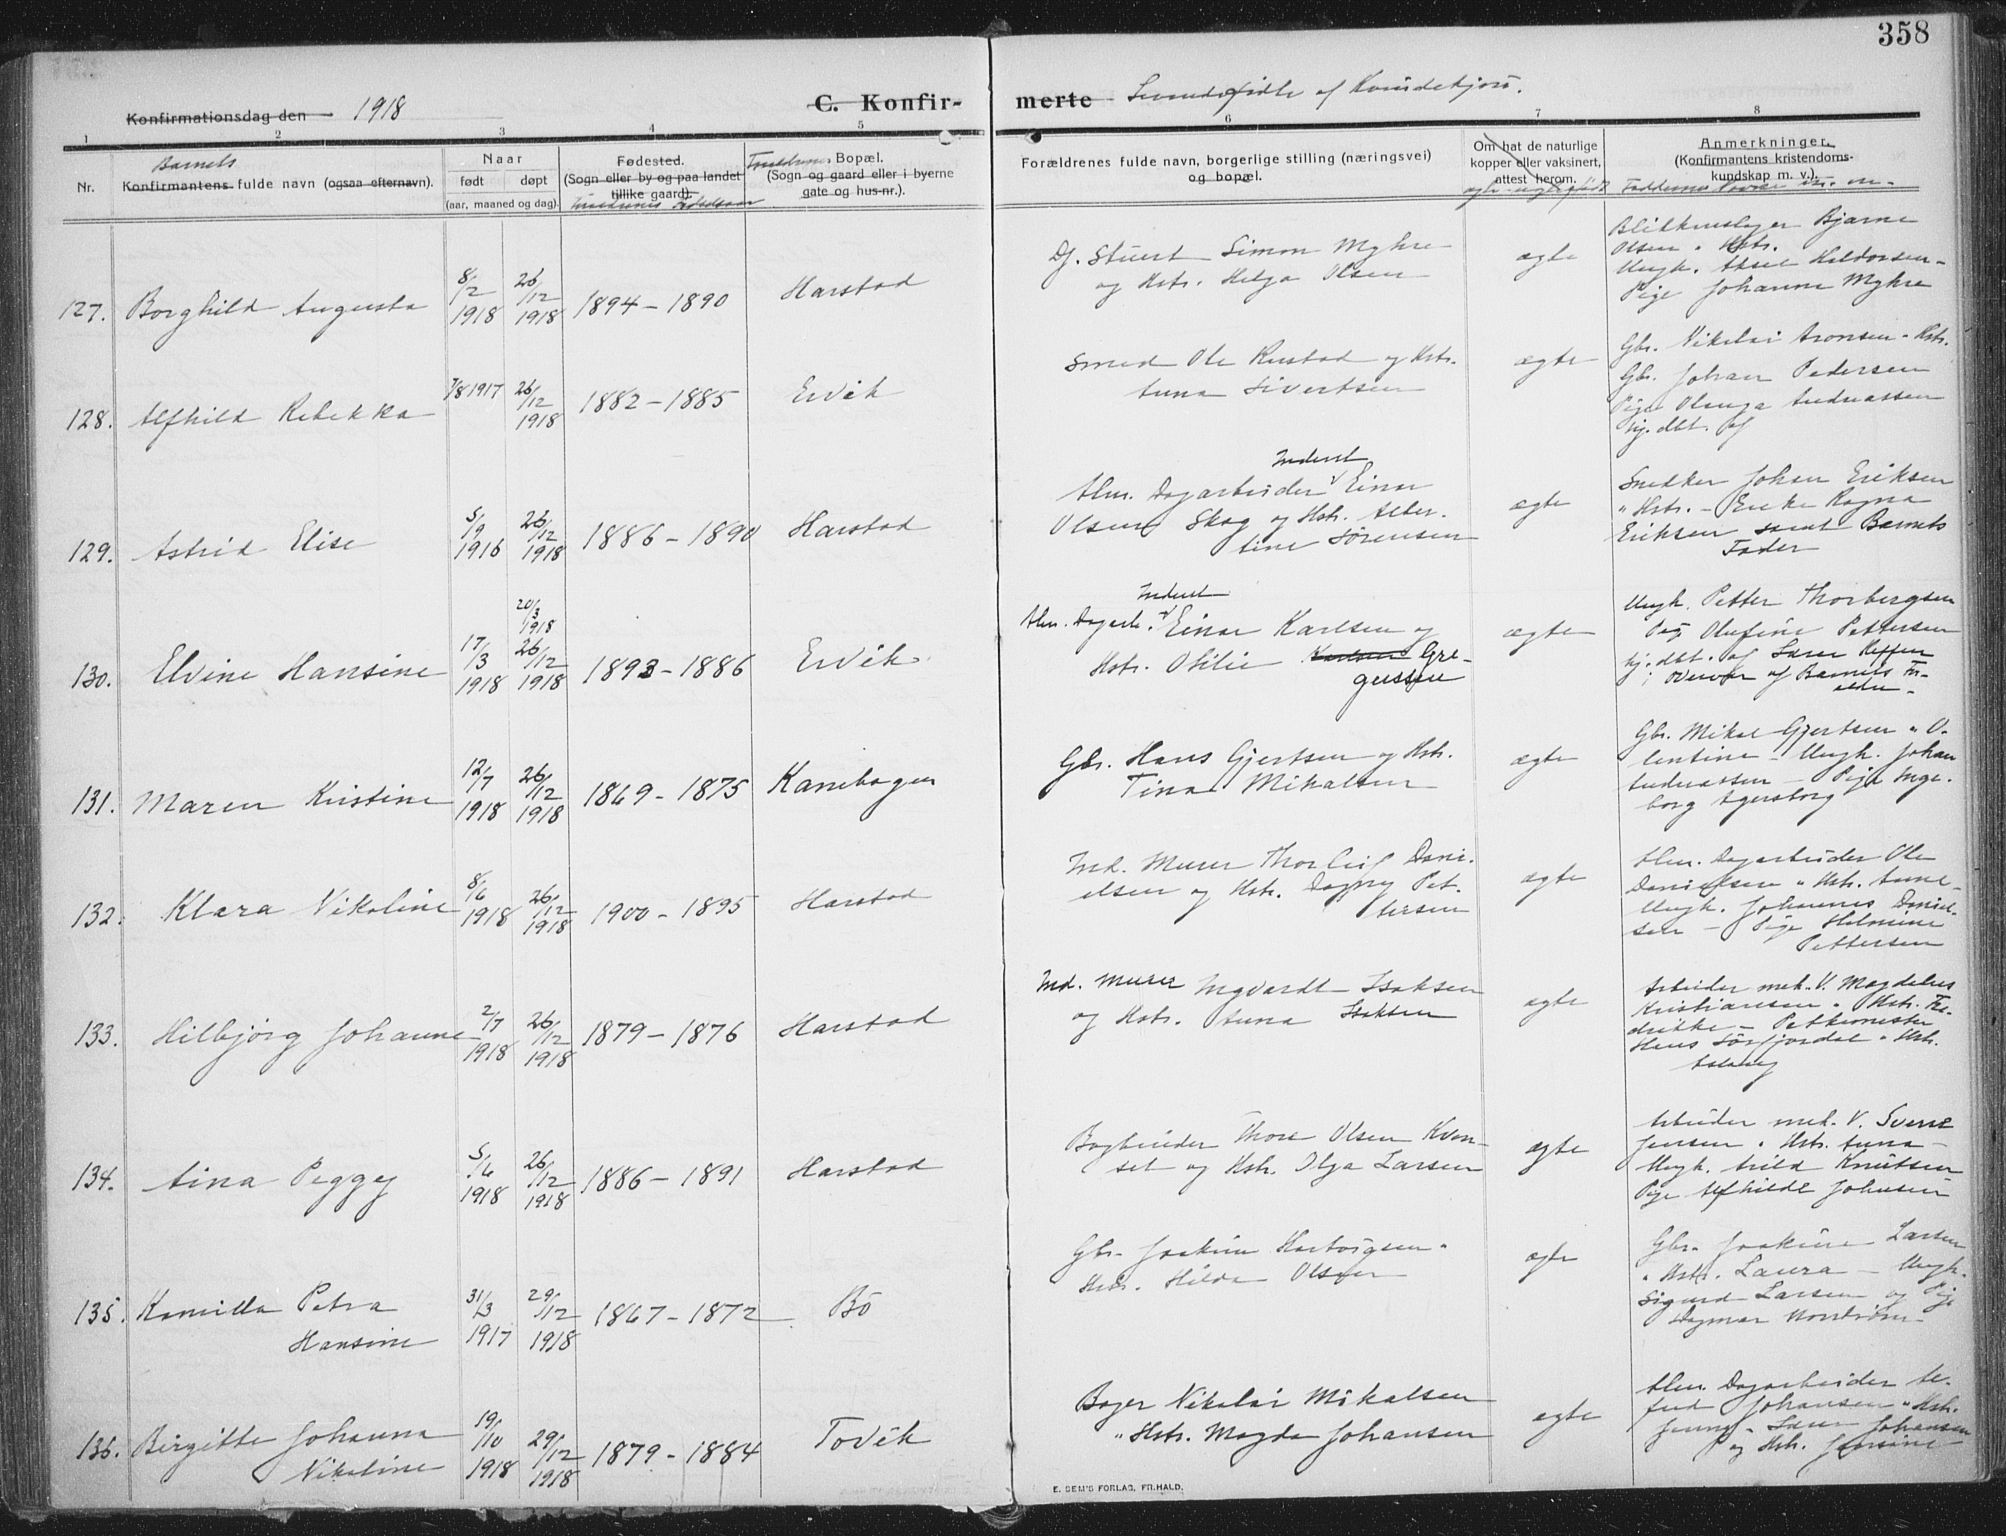 358
Konfirmationsdag den 1918
C. Konfirmerte Levendefødte af Kvindekjøn.
1 2 3 4 5 6 7 8
Nr.
Barnets
Konfirmantens fulde navn (ogsaa efternavn).
Naar
født døpt
(aar, maaned og dag)
Fødested.
(Sogn eller by og paa landet
tillike gaard).
Forældrenes Fødselsaar
Forældrenes Bopæl.
(Sogn og gaard eller i byerne
gate og hus-nr.).
Forældrenes fulde navn, borgerlige stilling (næringsvei)
og bopæl.
Om hat de naturlige
kopper eller vaksinert,
attest herom.
Anmerkninger.
(Konfirmantens kristendoms-
kundskap m. v.).
Faddernes
127. Borghild Augusta
8/2 1918
26/12 1918
1894 – 1890
Harstad
Dj. Stuert Simon Myhre
og Hstr. Helga Olsen
ægte
Blikkenslager Bjarne
Olsen " Hstr.
Ungk. Aksel Haldorsen –
Pige Johanna Myhre
128. Alfhild Rebekka
7/8 1917
26/12 1918
1882 – 1885
Ervik
Smed Ole Rustad og Hstr.
Anna Sivertsen
ægte
Gbr. Nikolai Aronsen " Hstr.
Gbr. Johan Pedersen
Pige Olauga Andreassen
hj. dbt. af
129. Astrid Elise
5/9 1916
26/12 1918
1886 – 1890
Harstad
Inderst
Alm. Dagarbeider Einar
Olsen Skog og Hstr. Alber-
tine Sørensen
ægte
Snedker Johan Eriksen
" Hstr. – Enke Ragna
Eriksen samt Barnets
Fader
130. Elvine Hansine
17/3 1918
20/3 1918
26/12 1918
1893 – 1886
Ervik
Inderst
Alm. Dagarb. Einar Karlsen og
Hstr. Otilie Karlsen Gre-
gussen
ægte
Ungk. Petter Thorbergsen
Pige Olufine Pettersen
hj. dbt. af Lærer
i overvær af Barnets For-
ældre.
131. Maren Kristine
12/7 1918
26/12 1918
1869 – 1875
Kanebogen
Gbr. Hans Gjertsen og Hstr.
Tina Mikalsen
ægte
Gbr. Mikal Gjertsen " O-
lentine – Ungk. Johan
Andreassen – Pige Inge-
borg Agersborg
132. Klara Nikoline
8/6 1918
26/12 1918
1900 – 1895
Harstad
Ind. Murer Thorleif Dani-
elsen og Hstr. Dagny Pet-
tersen
ægte
Alm. Dagarbeider Ole
Danielsen " Hstr. Anne –
Ungk. Johannes Daniel-
sen – Pige Helmine
Pettersen
133. Hilbjørg Johanne
2/7 1918
26/12 1918
1879 – 1876
Harstad
Ind. Murer Ingvardt Isaksen
og Hstr. Anna Isaksen
ægte
Arbeider mek. V. Magdelus
Kristiansen " Hstr. Fre-
drikke –
Hans Sørfjordal " Hstr.
Aslaug
134. Aina Peggy
5/6 1918
26/12 1918
1886 – 1891
Harstad
Bogbinder Thore Olsen Kvan-
set og Hstr. Olga Larsen
ægte
Arbeider mek. V. Sverre
Jensen " Hstr. Anna –
Ungk. Arild Knutsen
Pige Alfhilde Johnsen
135. Kamilla Petra
Hansine
31/3 1917
29/12 1918
1867 – 1872
Bø
Gbr. Joakim Hartvigsen "
Hstr. Hilda Olsen
ægte
Gbr. Joakim Larsen
" Hstr. Laura – Ungk.
Sigurd Larsen og Pige
Dagmar Nordstrøm
136. Birgitte Johanna
Nikoline
19/10 1918
29/12 1918
1879 – 1884
Tovik
Bager Nikolai Mikalsen
" Hstr. Magda Johansen
ægte
Alm. Dagarbeider Al-
fred Johansen " Hstr.
Jenny – Johansen
og Hstr. Jensine
E. SEM'S FORLAG, FR.HALD.